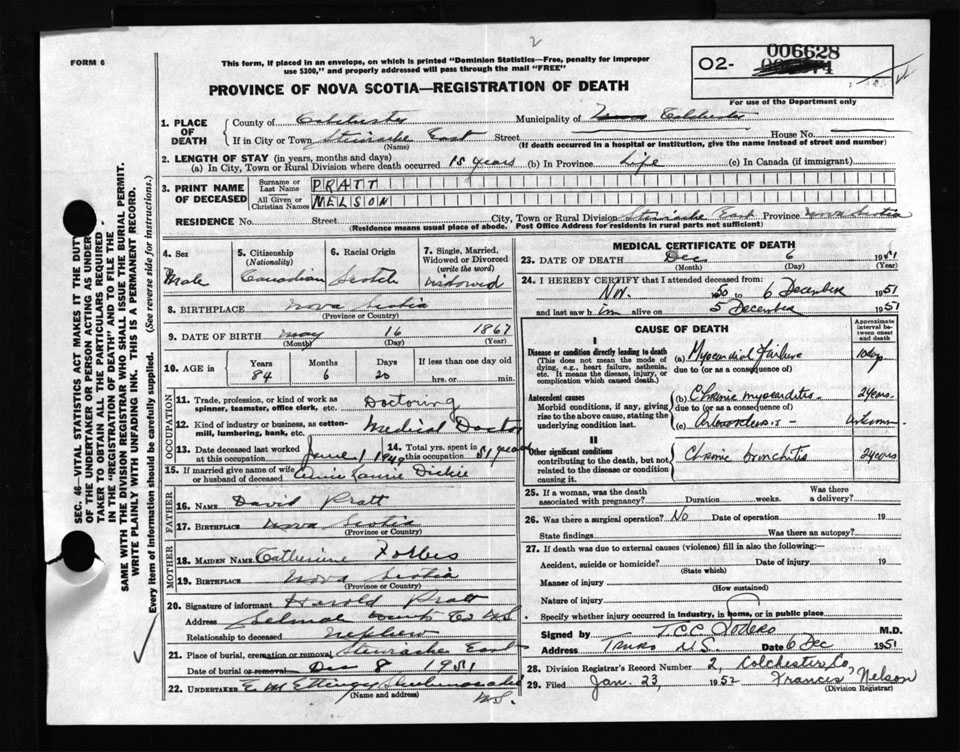 2
FORM 6
This form, if placed in an envelope, on which is printed "Dominion Statistics—Free, penalty for improper
use $300," and properly addressed will pass through the mail "FREE"
PROVINCE OF NOVA SCOTIA—REGISTRATION OF DEATH
O2- 006628
For use of the Department only
1. PLACE OF DEATH
County of Colchester Municipality of Colchester
If in City or Town Stewiacke East Street House No.
(Name) (If death occurred in a hospital or institution, give the name instead of street and number)
2. LENGTH OF STAY (in years, months and days)
(a) In City, Town or Rural Division where death occurred 15 years (b) In Province Life (c) In Canada (if immigrant)
3. PRINT NAME OF DECEASED
Surname or Last Name PRATT
All Given or Christian Names NELSON
RESIDENCE No. Street City, Town or Rural Division Stewiacke East Province Nova Scotia
(Residence means usual place of abode. Post Office Address for residents in rural parts not sufficient)
4. Sex
Male
5. Citizenship
(Nationality)
Canadian
6. Racial Origin
Scotch
7. Single, Married,
Widowed or Divorced
(write the word)
Widowed
8. BIRTHPLACE Nova Scotia
(Province or Country)
9. DATE OF BIRTH May 16 1867
(Month) (Day) (Year)
10. AGE in
Years Months Days If less than one day old
84 6 20 hrs. or min.
OCCUPATION
11. Trade, profession, or kind of work as
spinner, teamster, office clerk, etc. Doctoring
12. Kind of industry or business, as cotton-
mill, lumbering, bank, etc. Medical Doctor
13. Date deceased last worked
at this occupation June 1 1949
14. Total yrs. spent in
this occupation 51 years
15. If married give name of wife
or husband of deceased Annie Laurie Dickie
FATHER
16. Name David Pratt
17. Birthplace Nova Scotia
(Province or Country)
MOTHER
18. MAIDEN NAME Catherine Forbes
19. BIRTHPLACE Nova Scotia
(Province or Country)
20. Signature of informant Harold Pratt
Address Selmah Hants Co N.S.
Relationship to deceased nephew
21. Place of burial, cremation or removal Stewiacke East
Date of burial or removal Dec 8 1951
22. UNDERTAKER E. M. Ettinger Shubenacadie
(Name and address) N.S.
MEDICAL CERTIFICATE OF DEATH
23. DATE OF DEATH Dec 6 1951
(Month) (Day) (Year)
24. I HEREBY CERTIFY that I attended deceased from:
Nov. 1950 to 6 December 1951
and last saw him alive on 5 December 1951
CAUSE OF DEATH
Approximate interval between onset and death
I
Disease or condition directly leading to death
(This does not mean the mode of
dying, e.g., heart failure, asthenia,
etc. It means the disease, injury, or
complication which caused death.)
(a) Myocardial Failure 10 days
due to (or as a consequence of)
Antecedent causes
Morbid conditions, if any, giving
rise to the above cause, stating the
underlying condition last.
(b) Chronic myocarditis 2 years
due to (or as a consequence of)
(c) Arteriosclerosis — Unknown
II
Other significant conditions
contributing to the death, but not
related to the disease or condition
causing it.
Chronic bronchitis 2 years
25. If a woman, was the death
associated with pregnancy? Duration weeks. Was there a delivery?
26. Was there a surgical operation? No Date of operation 19
State findings Was there an autopsy?
27. If death was due to external causes (violence) fill in also the following:—
Accident, suicide or homicide? Date of injury 19
(State which)
Manner of injury
(How sustained)
Nature of injury
Specify whether injury occurred in industry, in home, or in public place
Signed by T.C.C. M.D.
Address Truro N.S. Date 6 Dec 1951
28. Division Registrar's Record Number 2, Colchester Co,
29. Filed Jan. 23, 1952 Frances Nelson
(Division Registrar)
SEC. 46—VITAL STATISTICS ACT MAKES IT THE DUTY
OF THE UNDERTAKER OR PERSON ACTING AS UNDER-
TAKER TO OBTAIN ALL THE PARTICULARS REQUIRED
IN THE "REGISTRATION OF DEATH" AND TO FILE THE
SAME WITH THE DIVISION REGISTRAR WHO SHALL ISSUE THE BURIAL PERMIT.
WRITE PLAINLY WITH UNFADING INK. THIS IS A PERMANENT RECORD.
Every item of information should be carefully supplied. (See reverse side for instructions.)